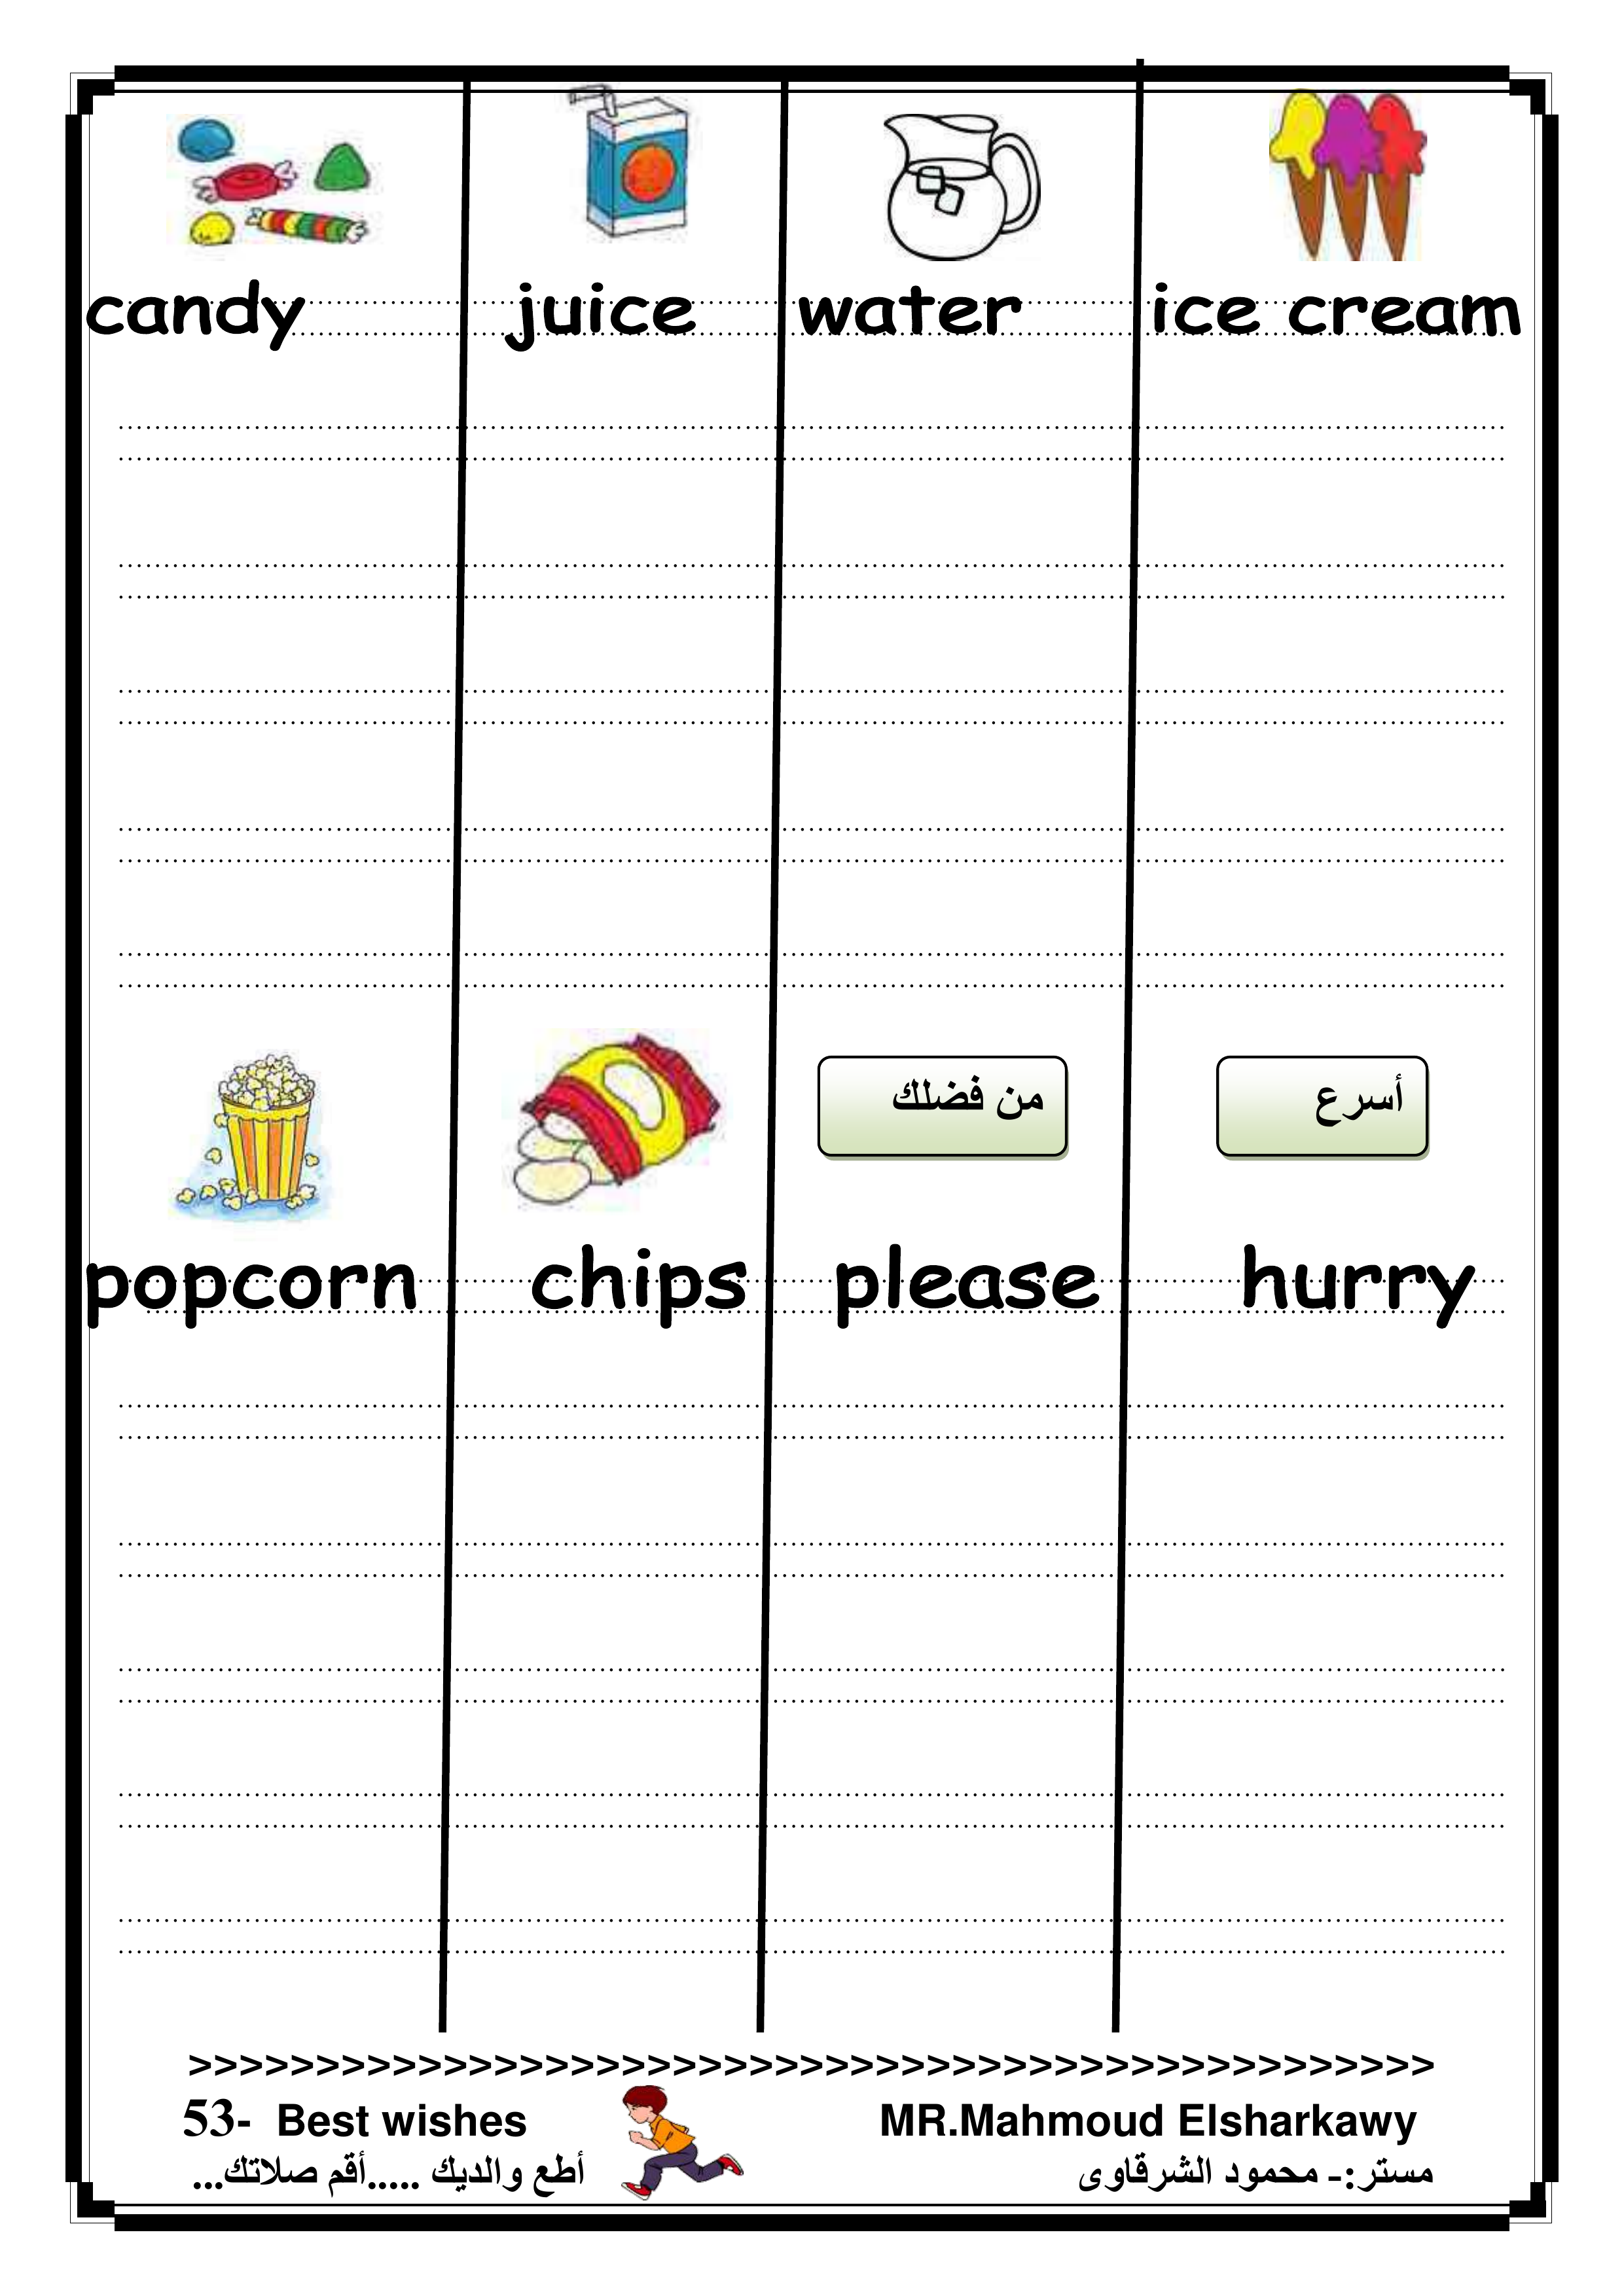 candy juice water ice cream
من فضلك أسرع
popcorn chips please hurry
>>>>>>>>>>>>>>>>>>>>>>>>>>>>>>>>>>>>>>>>>>>>>>>>>
53- Best wishes MR.Mahmoud Elsharkawy
أطع والديك .....أقم صلاتك... مستر:- محمود الشرقاوى